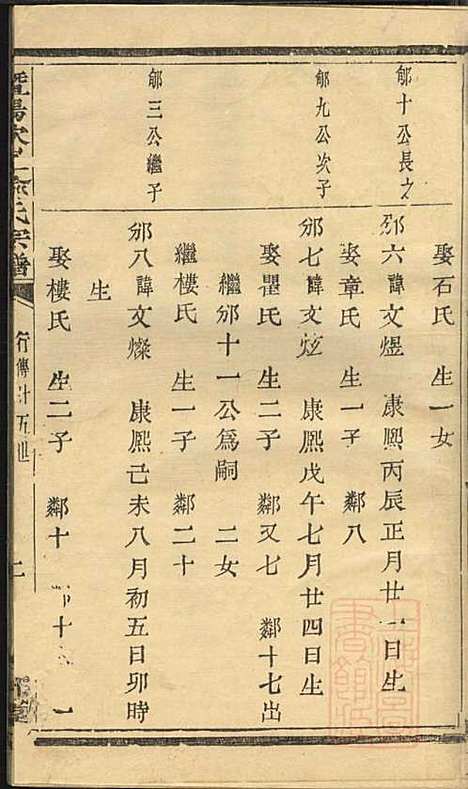 娶石氏　生一女
郇十公長子
邠六諱文煜　康熙丙辰正月廿一日生
娶章氏　生一子　鄰八
郇九公次子
邠七諱文炫　康熙戊午七月廿四日生
娶瞿氏　生二子　鄰又七　鄰十七出
繼邠十一公爲嗣　二女
繼樓氏　生一子　鄰二十
郇三公繼子
邠八諱文燦　康熙己未八月初五日卯時
生
娶樓氏　生二子　鄰十　鄰十　一
暨陽次峯俞氏宗譜
行傳廿五世
二